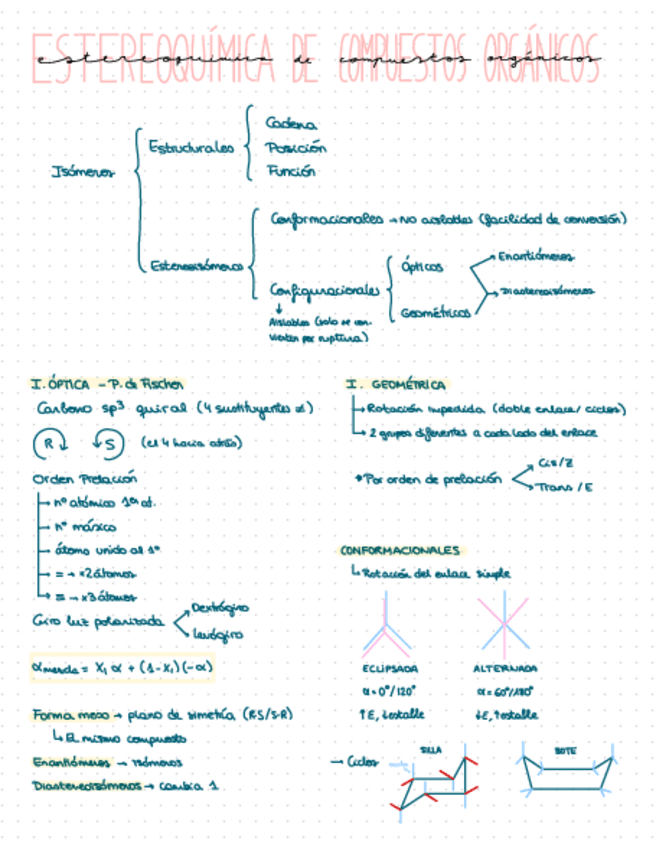 ESTEREOQUÍMICA DE COMPUESTOS ORGÁNICOS
estereoquímica de compuestos orgánicos
Isómeros
Estructurales
Cadena
Posición
Función
Estereoisómeros
Conformacionales → No aislables (facilidad de conversión)
Configuracionales
↓
Aislables (solo se con-
vierten por ruptura)
Ópticos
Geométricos
Enantiómeros
Diastereoisómeros
I. ÓPTICA - P. de Fischer
Carbono sp³ quiral (4 sustituyentes ≠)
R S (el 4 hacia atrás)
Orden Prelación
nº atómico 1er át.
nº másico
átomo unido al 1º
= → x2 átomos
= → x3 átomos
Giro luz polarizada
Dextrógiro
Levógiro
α mezcla = X₁ α + (1-X₁)(-α)
Forma meso → plano de simetría (R-S/S-R)
↳ El mismo compuesto
Enantiómeros → isómeros
Diastereoisómeros → cambia 1
I. GEOMÉTRICA
Rotación impedida (doble enlace/ ciclos)
2 grupos diferentes a cada lado del enlace
Por orden de prelación
Cis/Z
Trans/E
CONFORMACIONALES
↳ Rotación del enlace simple
ECLIPSADA
α=0º/120º
↑E, ↓estable
ALTERNADA
α=60º/180º
↓E, ↑estable
→ Ciclos
SILLA
BOTE